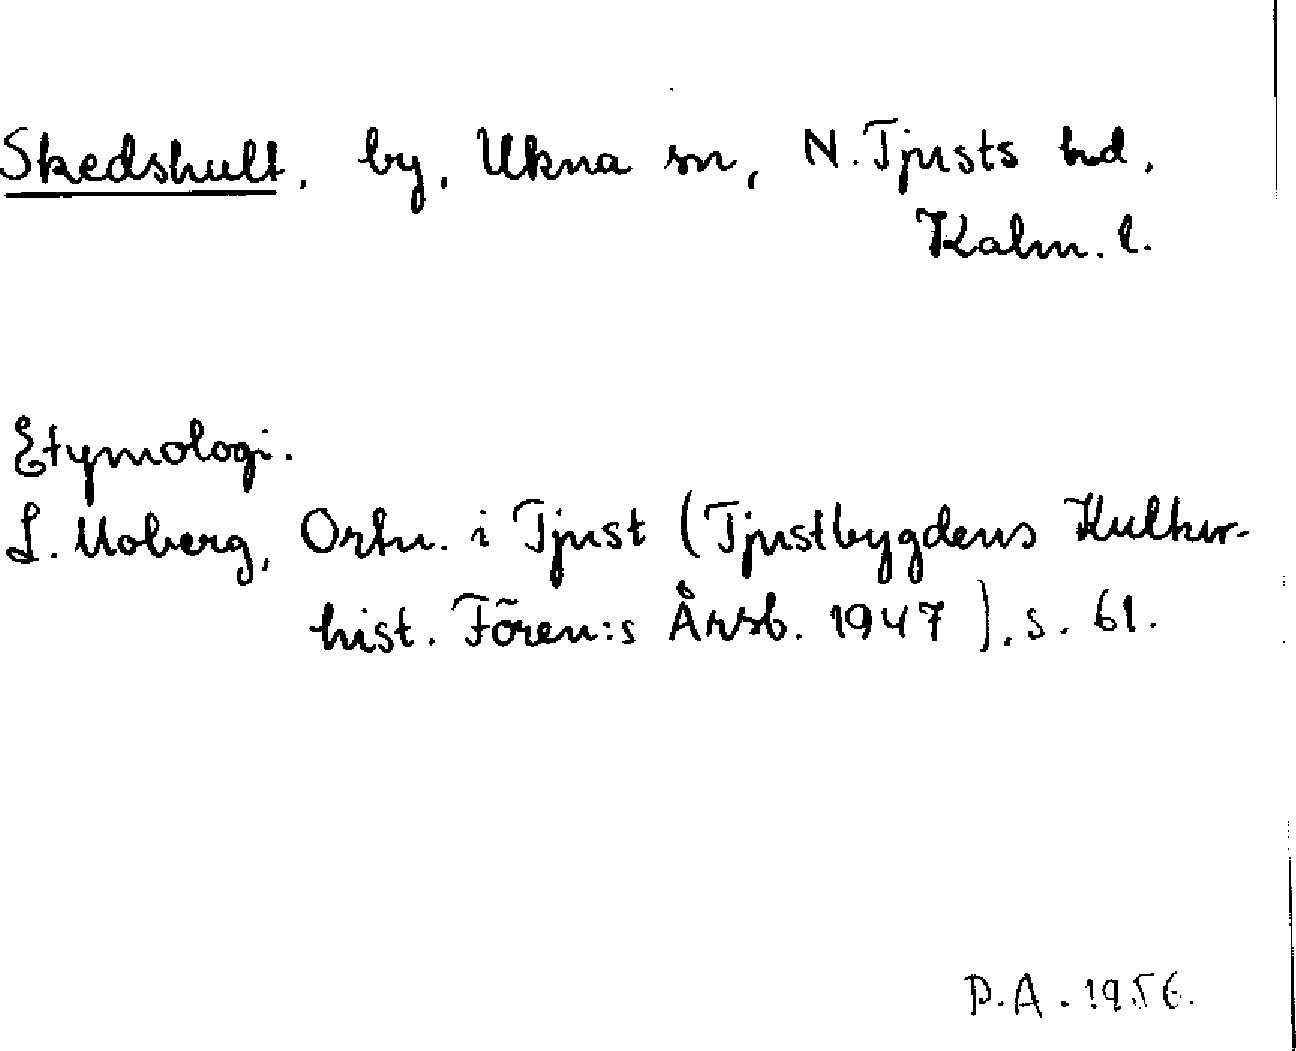 Skedshult, by, Ukna sn, N. Tjusts hd,
Kalm. l.
Etymologi.
L. Moberg, Ortn. i Tjust (Tjustbygdens Kultur-
hist. Fören:s Årsb. 1947), s. 61.
P.A. 1956.